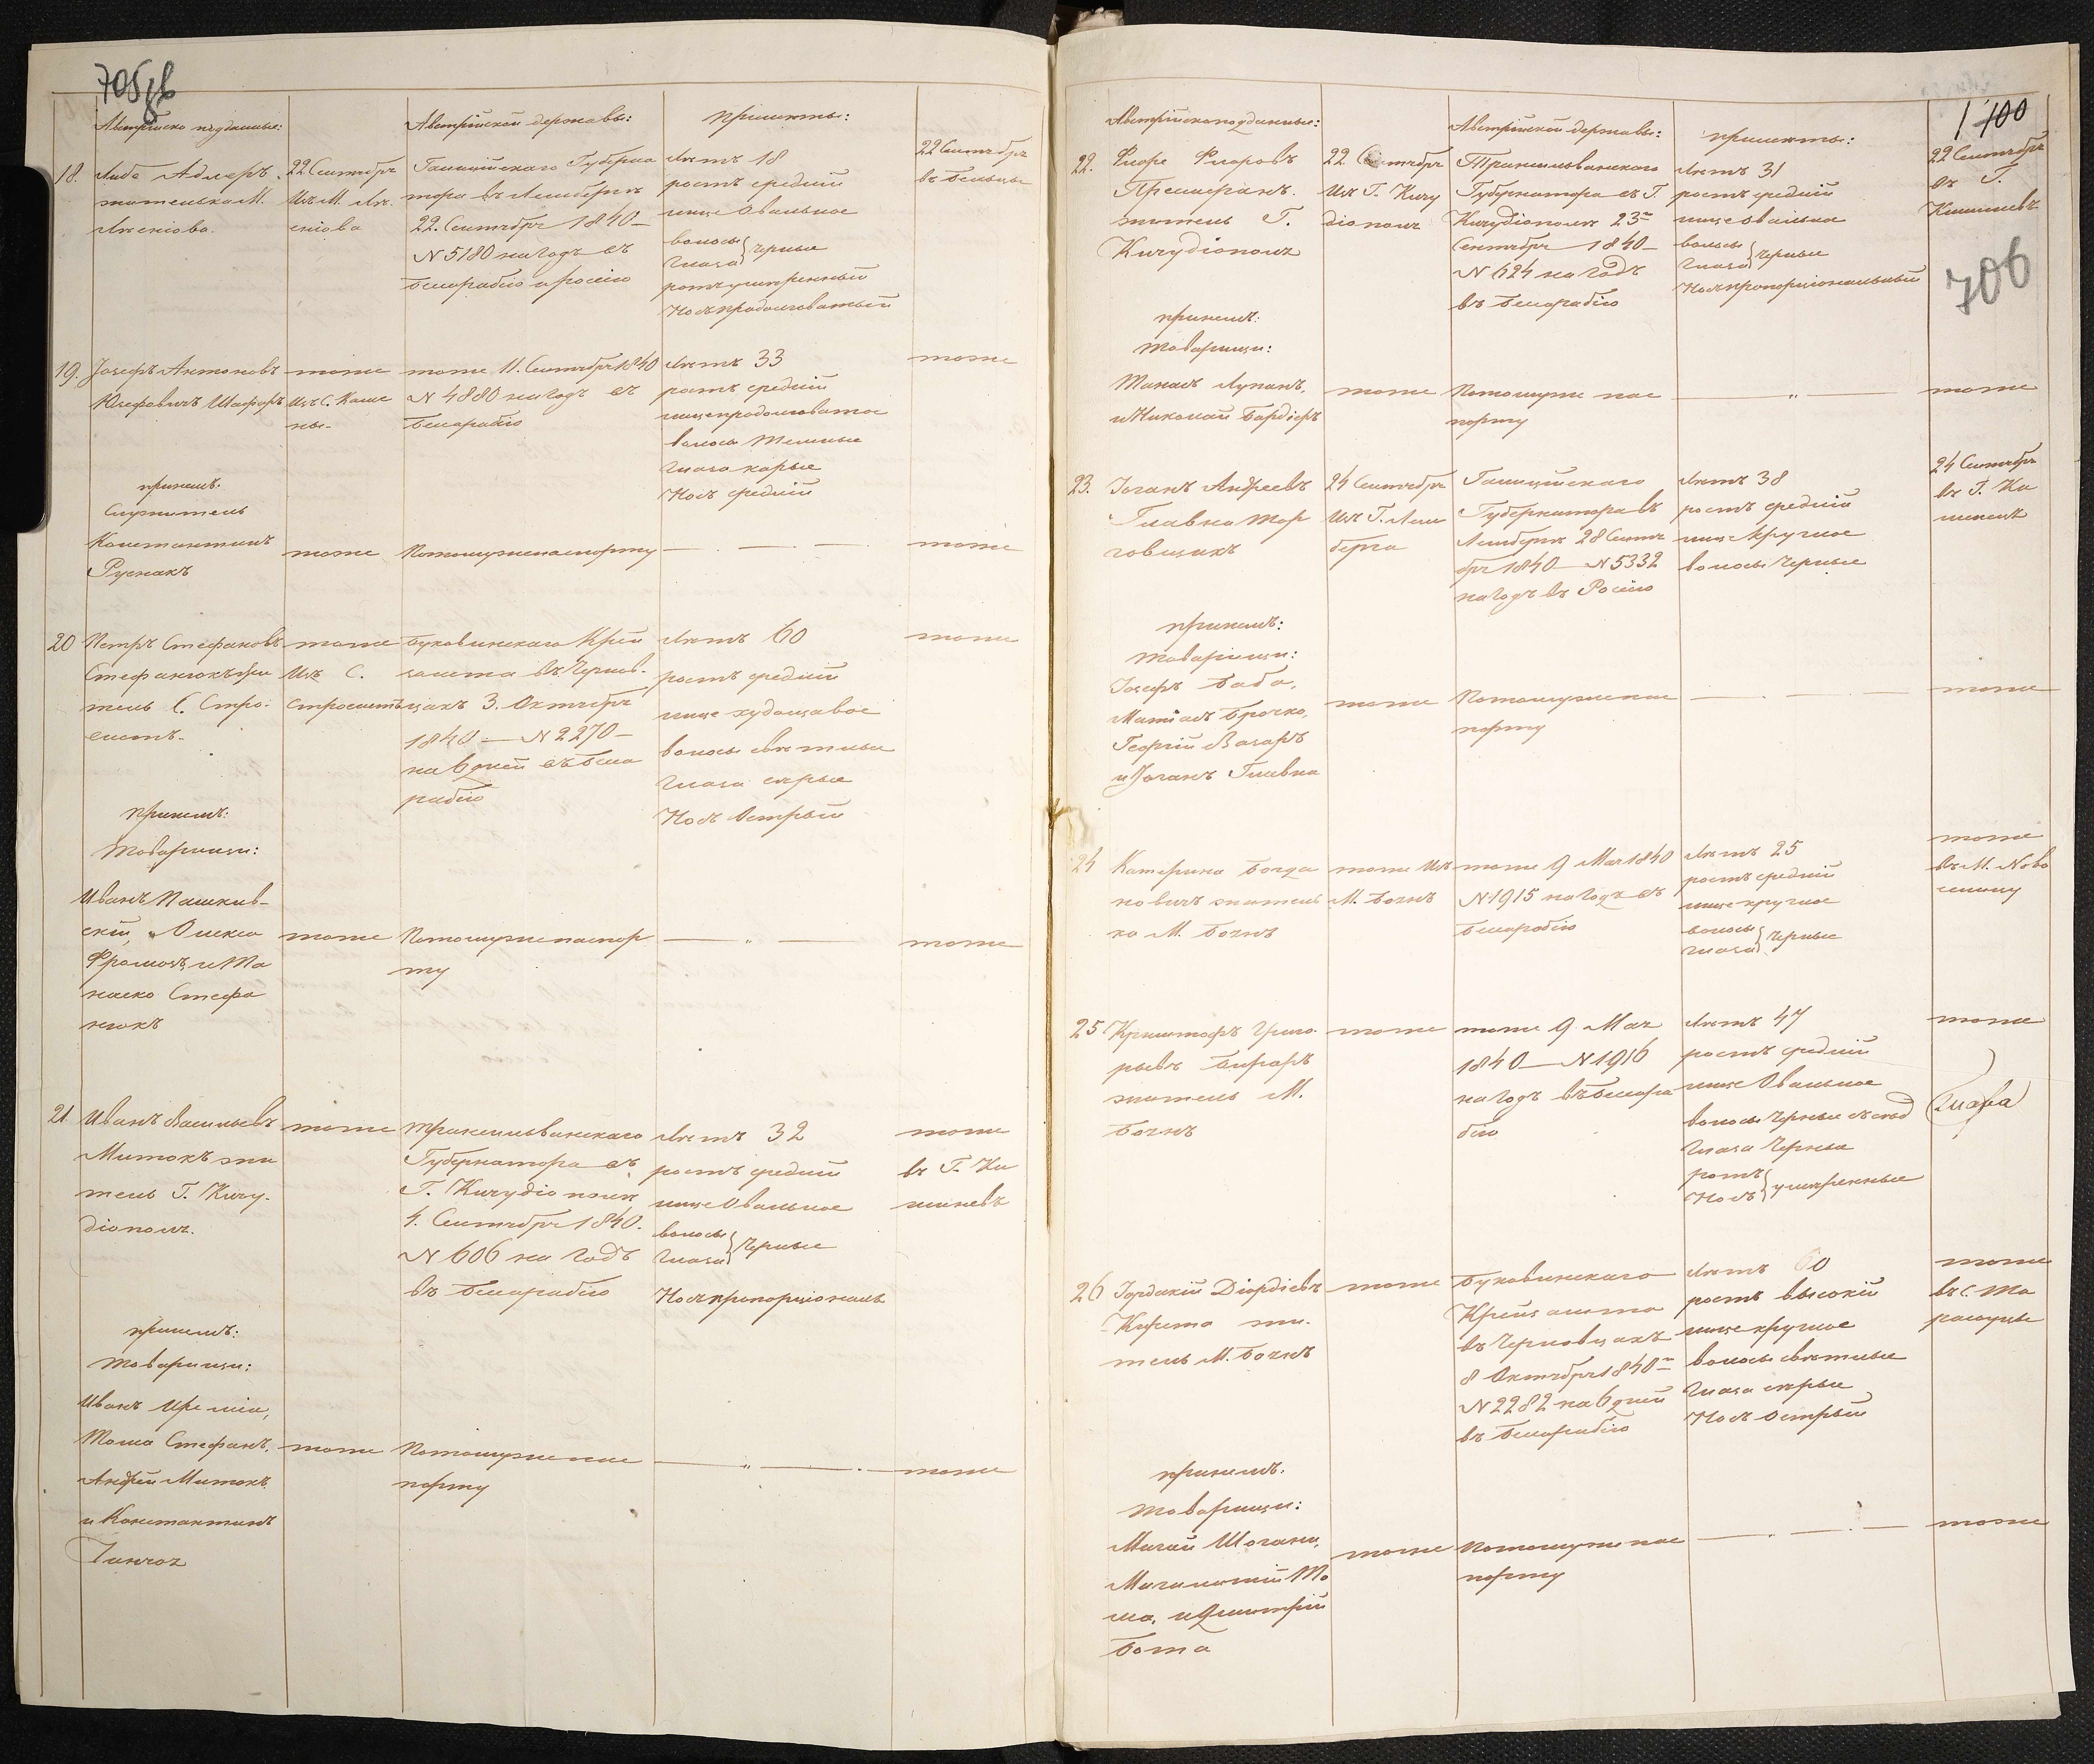 705 об
Австрийско подданные:
Австрийской державы:
приметы:
18.
Либе Адлеръ
жителька М.
22 Сентября
Изъ М.
Галицийского Губерна
тора въ Лемберге
22. Сентября 1840 –
N 5180 на годъ въ
Бесарабию и россию
Летъ 18
ростъ средний
лице Овальное
волосы
глаза } черные
ротъ умеренный
Носъ продолговатый
22 Сентября
въ Бельцы
19.
Іозефъ Антоновъ
Юзефовичъ
тоже
Изъ С.
тоже 11. Сентября 1840
N 4880 на годъ въ
Бесарабію
Летъ 33
ростъ средній
лице продолговатое
волосы темные
глаза карые
Носъ средній
тоже
принемъ:
Служитель
Константинъ
Руснакъ
тоже
Потомуже паспорту
тоже
20
Петръ Стефановъ
Стефанюкъ жи
тель С. Стро-
енцтъ
тоже
Изъ С.
Буковинскаго Крей
замта въ Чернов-
цахъ 3. Октября
1840 — N 2270 –
на 6 дней въ Беса
рабію
Летъ 60
ростъ средній
лице худощавое
волосы светлые
глаза серые
Носъ Острый
тоже
принемъ:
Товарищи:
Иванъ Пашкив-
скій, Олекса
и Та
наско Стефа
нюкъ
тоже
Потомуже паспор
ту
тоже
21
Иванъ Васильевъ
Митокъ жи
тель Г. Кизу-
діополя.
тоже
Трансильванскаго
Губернатора въ
Г. Кизудіополе
4. Сентября 1840.
N 606 на годъ
въ Бесарабію
Летъ 32
ростъ средній
лице Овальное
волосы
глаза } черные
Носъ пропорціональ
тоже
въ Г. Ки
шиневъ
принемъ:
Товарищи:
Иванъ Иремія,
Тома Стефанъ,
Андрей Митокъ
и Константинъ
тоже
Потомуже пас
порту
тоже
1 100
706
Австрійскоподданные:
Австрійской державы:
приметы:
22.
Флоре Флоровъ
житель Г.
Кизудіополя
22 Сентября
Изъ Г. Кизу
діополя
Трансильванскаго
Губернатора въ Г.
Кизудіополе 23го
Сентября 1840 –
N 624 на годъ
въ Бесарабію
Летъ 31
ростъ средній
лице овальное
волосы
глаза } черные
Носъ пропорціональный
22 Сентября
въ Г.
Кишиневъ
принемъ:
Товарищи:
Танасъ Лупанъ,
и Николай Бардіеръ
тоже
Потомуже пас
порту
тоже
23.
Іоганъ Андреевъ
Главка Тор
говщикъ
24 Сентября
Изъ Г. Лем
берга
Галиційскаго
Губернатора въ
Лемберге 28 Сентя
бря 1840 — N 5332
на годъ въ Росію
Летъ 38
ростъ средній
лице круглое
волосы черные
24 Сентября
въ Г. Ки
шиневъ
принемъ:
Товарищи:
Іозефъ Баба,
Матіасъ Брочко,
Георгій Вазаръ
и Іоганъ Главка
тоже
Потомуже пас
порту
тоже
24
Катерина Богда
новичъ житель
ка М. Боянъ
тоже Изъ
М. Боянъ
тоже 9 Мая 1840
N 1915 на годъ въ
Бесарабію
Летъ 25
ростъ средній
лице круглое
волосы
глаза } черные
тоже
въ М. Ново
селицу
25
Криштофъ Григо
рьевъ
житель М.
Боянъ
тоже
тоже 9 Мая
1840 — N 1916
на годъ въ Бесара
бію
Летъ 47
ростъ средній
лице Овальное
волосы черные
глаза черные
ротъ
Носъ } умеренные
тоже
26
Іордакій Діордіевъ
жи-
тель М. Боянъ
тоже
Буковинскаго
Крейзамта
въ Черновцахъ
8 Октября 1840го
N 2282 на 6 дней
въ Бесарабію
Летъ 60
ростъ высокій
лице круглое
волосы светлые
глаза серые
Носъ Острый
тоже
въ С. Та
расоуцы
принемъ:
Товарищи:
То
ма, и Дмитрій
Бота
тоже
Потомуже пас
порту
тоже